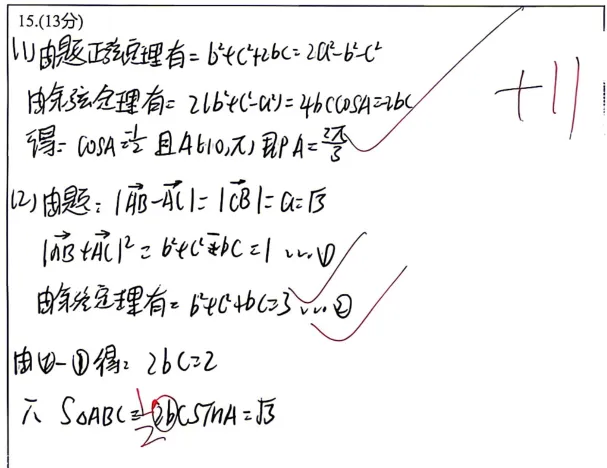 15.(13分)
(1)由题正弦定理有=b²+c²+2bc=2a²-b²-c²
由余弦定理有=2(b²+c²-a²)=4bccosA=-2bc
得=cosA=-1/2 且A∈(0,π)即A=2π/3
+11
(2)由题:|AB-AC|=|CB|=a=√3
|AB+AC|²=b²+c²-bc=1 ……①
由余弦定理有=b²+c²+bc=3 ……②
由②-①得:2bc=2
S△ABC=1/2 2bcsinA=√3